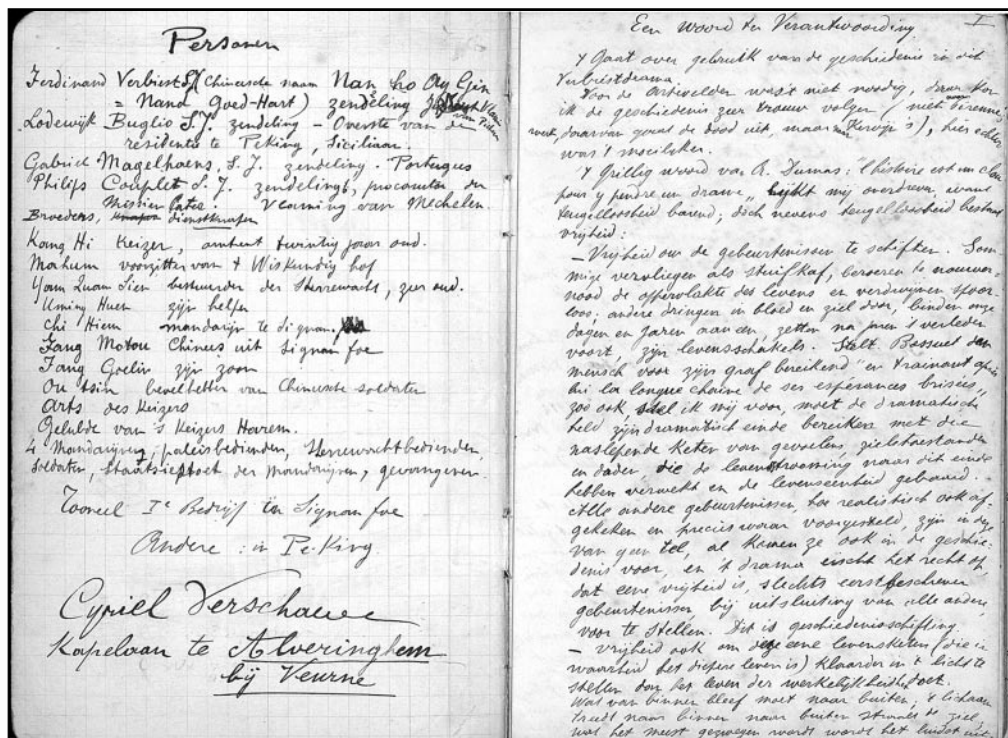 Personen
Ferdinand Verbiest S.J. (Chineesche naam Nan ho
= Nand Goed-Hart) zendeling
Lodewijk Buglio S.J. zendeling - Overste van de
residentie te Peking, Siciliaan.
Gabriel Magelhaens, S.J. zendeling. Portugees
Philips Couplet S.J. zendeling, procurator der
Missien later. Vlaming van Mechelen.
Broeders, dienstknapen
Kang Hi Keizer, omtrent twintig jaar oud.
Mahum voorzitter van 't Wiskundig hof
Yam Quam Sien bestuurder der Sterrewacht, zeer oud.
Uming Huen zijn helper
Chi Hiem mandarijn te Signan.
Fang Motou Chinees uit Signan foe
Fang Goelin zijn zoon
Ou tsin bevelhebber van Chineesche soldaten
Arts des Keizers
Gelulde van 's Keizers Harem.
4 Mandarijnen, paleisbedienden, Sterrewachtbedienden,
soldaten, Staatsiestoet der mandarijnen, gevangenen.
Tooneel Ie Bedrijf in Signan foe
Andere : in Pe-King.
Cyriel Verschaeve
Kapelaan te Alveringhem
bij Veurne
I
Een woord ter Verantwoording
't Gaat over gebruik van de geschiedenis in dit
Verbiestdrama.
Voor de Artevelden was 't niet noodig, daar kon
ik de geschiedenis zeer trouw volgen, (niet
daarvan gaat de dood uit, maar Kervijn's), hier echter
was 't moeilijker.
't Grillig woord van A. Dumas: "l'histoire est un clou
pour y pendre un drame" lijkt mij overdreven want
teugelloosheid barend; doch nevens teugelloosheid bestaat
vrijheid:
- Vrijheid om de gebeurtenissen te schiften. Som-
mige vervliegen als stuifkaf, beroeren te nauwer-
nood de oppervlakte des levens en verdwijnen spoor-
loos, andere dringen in bloed en ziel door, binden onze
dagen en jaren aaneen, zetten na jaren 't verleden
voort, zijn levensschakels. Stelt Bossuet den
mensch voor zijn graf bereikend "en trainant après
lui la longue chaîne de ses espérances brisées",
zoo ook, stel ik mij voor, moet de dramatische
held zijn dramatisch einde bereiken met de
naslepende keten van gevoelens, zielstoestanden
en daden die de levensstrooming naar dit einde
hebben verwekt en de levenseenheid gebouwd.
Alle andere gebeurtenissen, hoe realistisch ook af-
gekeken en precies waar voorgesteld, zijn
van geen tel, al komen ze ook in de geschie-
denis voor, en 't drama eischt het recht op,
dat eene vrijheid is, slechts
gebeurtenissen bij uitsluiting van alle andere
voor te stellen. Dit is geschiedenisschifting.
- Vrijheid ook om deze eene levensketen (die in
waarheid het diepere leven is) klaarder in 't licht te
stellen dan het leven der werkelijkheid doet.
Wat van binnen bleef moet naar buiten, 't lichaam
treedt naar binnen naar buiten straalt de ziel,
wat het meest gezwegen wordt wordt het luidst